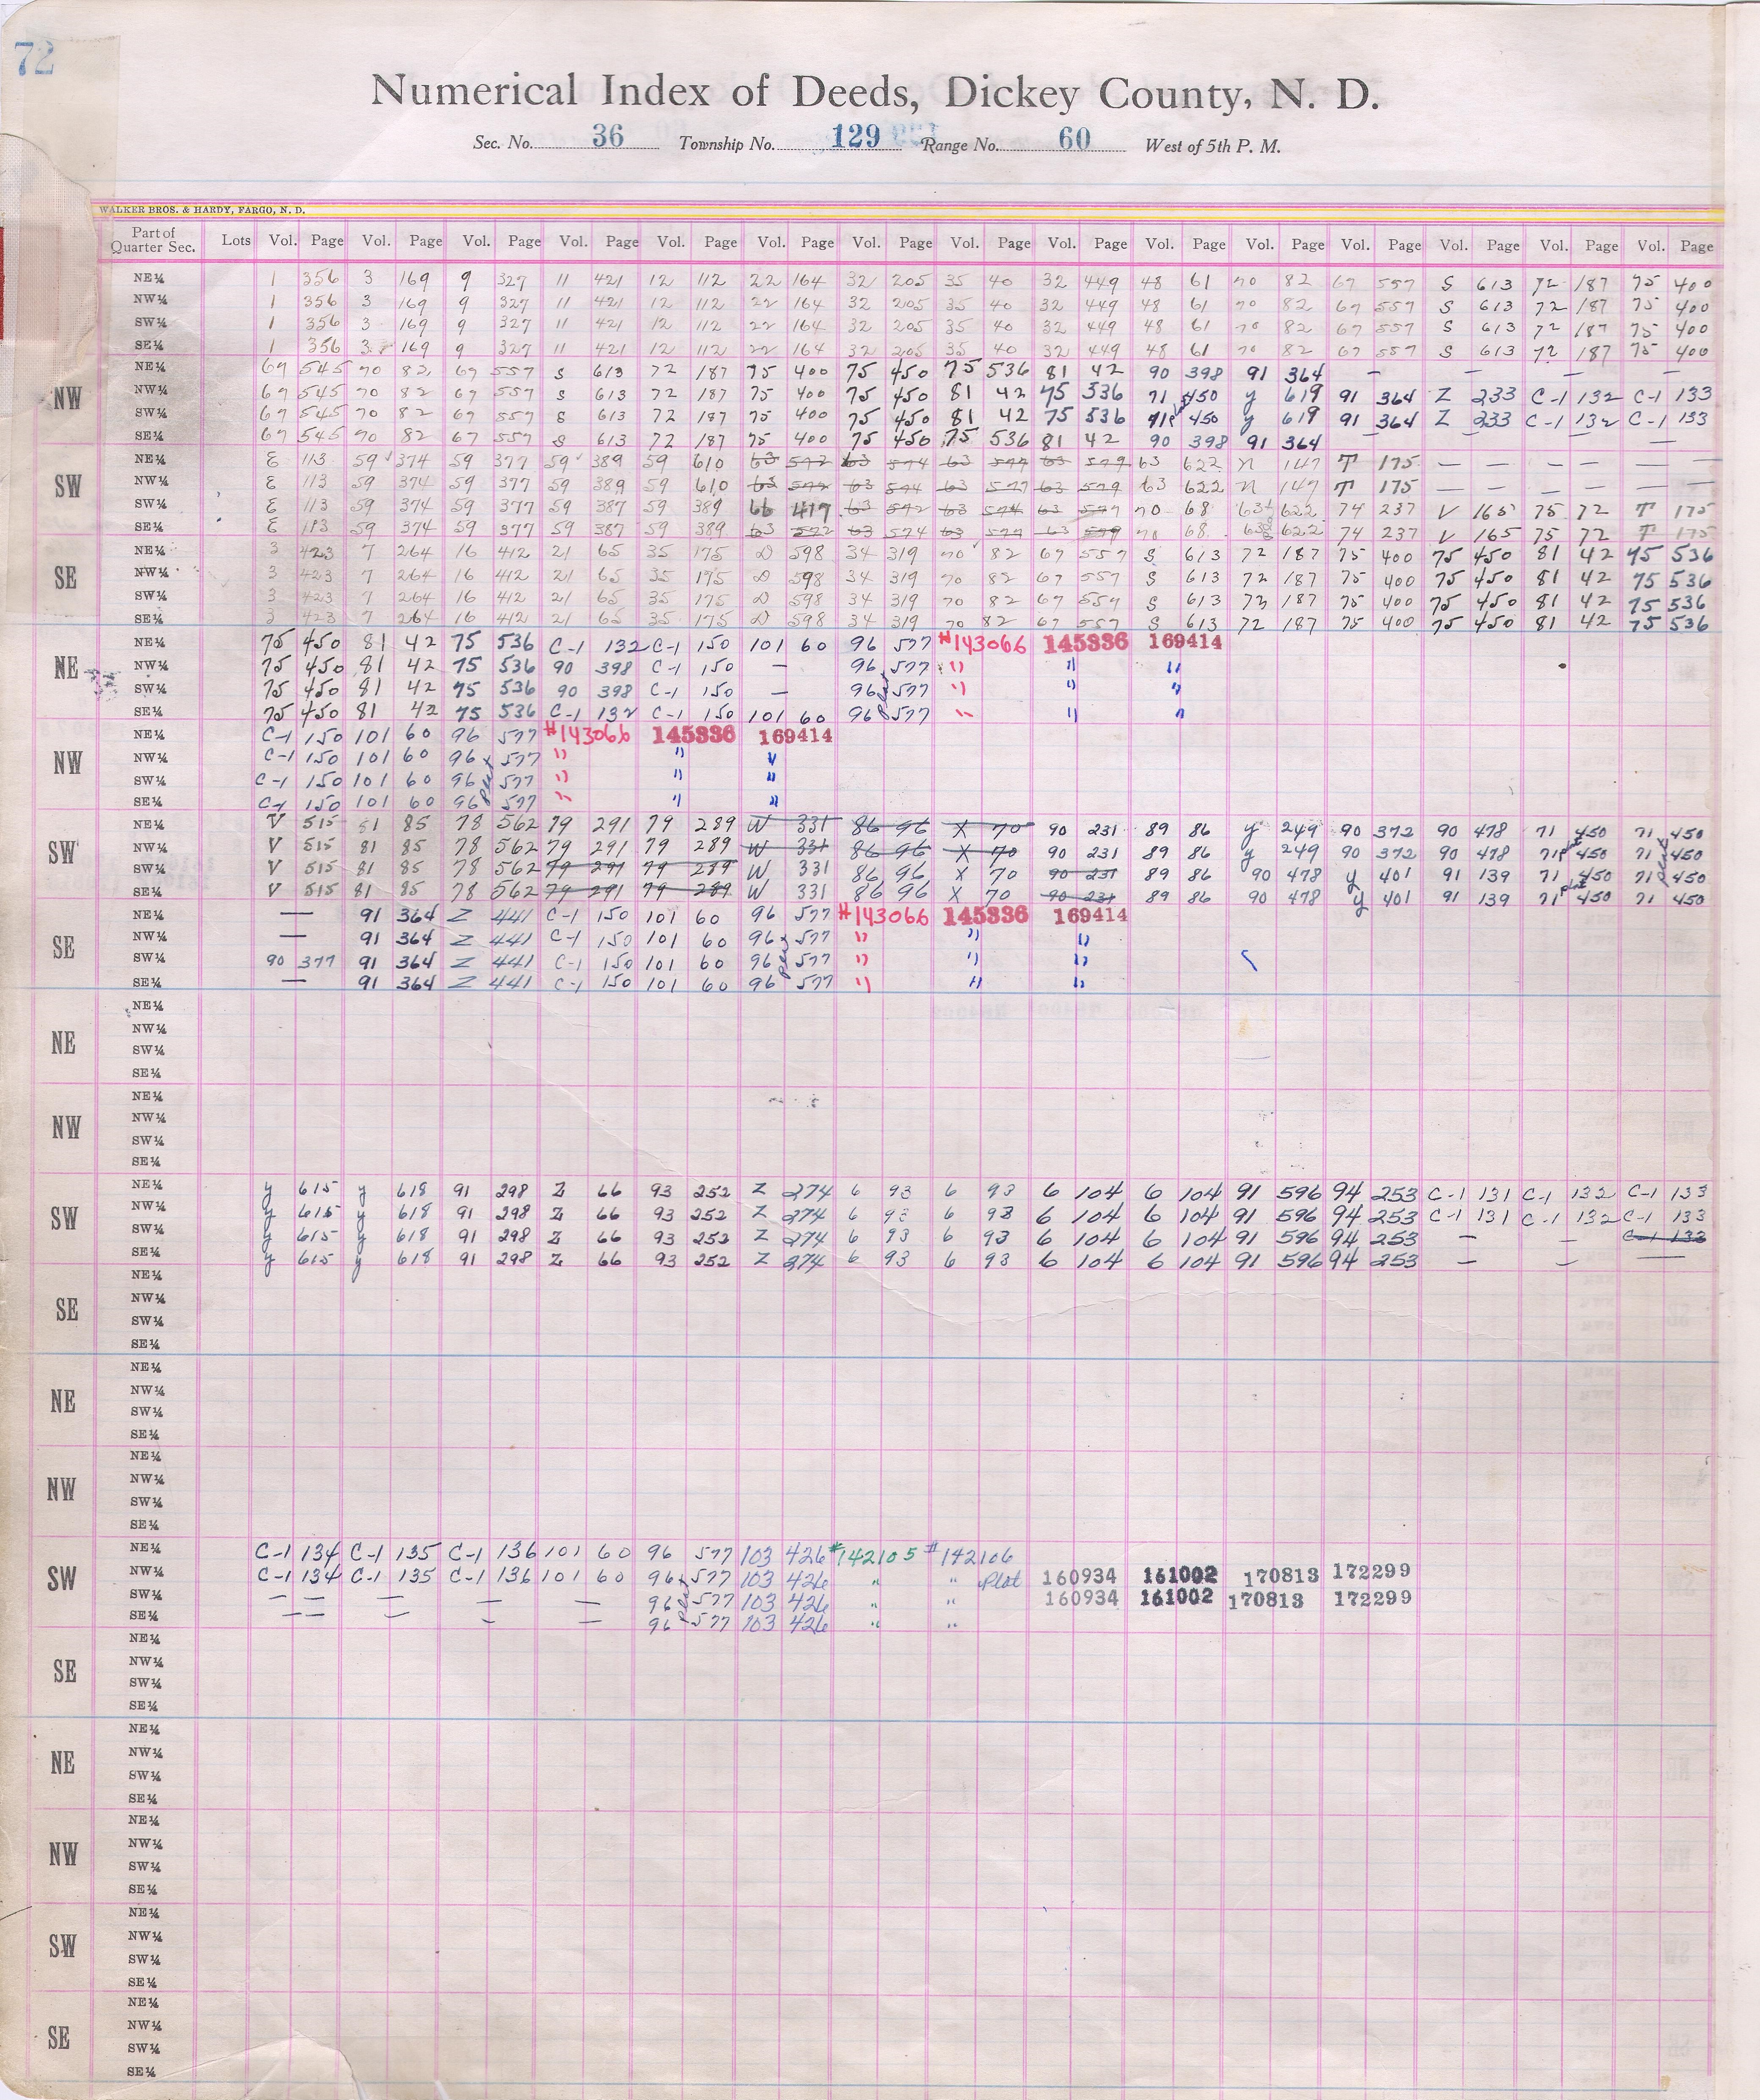 72
Numerical Index of Deeds, Dickey County, N. D.
Sec. No. 36 Township No. 129 Range No. 60 West of 5th P. M.
WALKER BROS. & HARDY, FARGO, N. D.
Part of Quarter Sec. Lots Vol. Page Vol. Page Vol. Page Vol. Page Vol. Page Vol. Page Vol. Page Vol. Page Vol. Page Vol. Page Vol. Page Vol. Page Vol. Page Vol. Page Vol. Page
NE¼ 1 356 3 169 9 327 11 421 12 112 22 164 32 205 35 40 32 449 48 61 70 82 67 557 S 613 72 187 75 400
NW¼ 1 356 3 169 9 327 11 421 12 112 22 164 32 205 35 40 32 449 48 61 70 82 67 557 S 613 72 187 75 400
SW¼ 1 356 3 169 9 327 11 421 12 112 22 164 32 205 35 40 32 449 48 61 70 82 67 557 S 613 72 187 75 400
SE¼ 1 356 3 169 9 327 11 421 12 112 22 164 32 205 35 40 32 449 48 61 70 82 67 557 S 613 72 187 75 400
NW
NE¼ 67 545 70 82 67 557 S 613 72 187 75 400 75 450 75 536 81 42 90 398 91 364 — — — —
NW¼ 67 545 70 82 67 557 S 613 72 187 75 400 75 450 81 42 75 536 71 450 y 619 91 364 Z 233 C-1 132 C-1 133
SW¼ 67 545 70 82 67 557 S 613 72 187 75 400 75 450 81 42 75 536 71 450 y 619 91 364 Z 233 C-1 132 C-1 133
SE¼ 67 545 70 82 67 557 S 613 72 187 75 400 75 450 75 536 81 42 90 398 91 364 — — — —
SW
NE¼ E 113 59 374 59 377 59 389 59 610 63 572 63 574 63 577 63 579 63 622 N 147 T 175 — — — — — —
NW¼ E 113 59 374 59 377 59 389 59 610 63 572 63 574 63 577 63 579 63 622 N 147 T 175 — — — — — —
SW¼ E 113 59 374 59 377 59 387 59 389 66 417 63 572 63 574 63 577 70 68 63 622 74 237 V 165 75 72 T 175
SE¼ E 113 59 374 59 377 59 387 59 389 63 572 63 574 63 577 63 579 70 68 63 622 74 237 V 165 75 72 T 175
SE
NE¼ 3 423 7 264 16 412 21 65 35 175 D 598 34 319 70 82 67 557 S 613 72 187 75 400 75 450 81 42 75 536
NW¼ 3 423 7 264 16 412 21 65 35 175 D 598 34 319 70 82 67 557 S 613 72 187 75 400 75 450 81 42 75 536
SW¼ 3 423 7 264 16 412 21 65 35 175 D 598 34 319 70 82 67 557 S 613 72 187 75 400 75 450 81 42 75 536
SE¼ 3 423 7 264 16 412 21 65 35 175 D 598 34 319 70 82 67 557 S 613 72 187 75 400 75 450 81 42 75 536
NE
NE¼ 75 450 81 42 75 536 C-1 132 C-1 150 101 60 96 577 #143066 145336 169414
NW¼ 75 450 81 42 75 536 90 398 C-1 150 — 96 577 " " "
SW¼ 75 450 81 42 75 536 90 398 C-1 150 — 96 plat 577 " " "
SE¼ 75 450 81 42 75 536 C-1 132 C-1 150 101 60 96 577 " " "
NW
NE¼ C-1 150 101 60 96 577 #143066 145336 169414
NW¼ C-1 150 101 60 96 577 " " "
SW¼ C-1 150 101 60 96 plat 577 " " "
SE¼ C-1 150 101 60 96 577 " " "
SW
NE¼ V 515 81 85 78 562 79 291 79 289 W 331 86 96 X 70 90 231 89 86 y 249 90 372 90 478 71 450 71 450
NW¼ V 515 81 85 78 562 79 291 79 289 W 331 86 96 X 70 90 231 89 86 y 249 90 372 90 478 71 plat 450 71 plat 450
SW¼ V 515 81 85 78 562 79 291 79 289 W 331 86 96 X 70 90 231 89 86 90 478 y 401 91 139 71 450 71 450
SE¼ V 515 81 85 78 562 79 291 79 289 W 331 86 96 X 70 90 231 89 86 90 478 y 401 91 139 71 plat 450 71 450
SE
NE¼ — 91 364 Z 441 C-1 150 101 60 96 577 #143066 145336 169414
NW¼ — 91 364 Z 441 C-1 150 101 60 96 577 " " "
SW¼ 90 377 91 364 Z 441 C-1 150 101 60 96 plat 577 " " "
SE¼ — 91 364 Z 441 C-1 150 101 60 96 577 " " "
NE
NE¼
NW¼
SW¼
SE¼
NW
NE¼
NW¼
SW¼
SE¼
SW
NE¼ y 615 y 618 91 298 Z 66 93 252 Z 274 6 93 6 93 6 104 6 104 91 596 94 253 C-1 131 C-1 132 C-1 133
NW¼ y 615 y 618 91 298 Z 66 93 252 Z 274 6 93 6 93 6 104 6 104 91 596 94 253 C-1 131 C-1 132 C-1 133
SW¼ y 615 y 618 91 298 Z 66 93 252 Z 274 6 93 6 93 6 104 6 104 91 596 94 253 — — C-1 133
SE¼ y 615 y 618 91 298 Z 66 93 252 Z 274 6 93 6 93 6 104 6 104 91 596 94 253 — — —
SE
NE¼
NW¼
SW¼
SE¼
NE
NE¼
NW¼
SW¼
SE¼
NW
NE¼
NW¼
SW¼
SE¼
SW
NE¼ C-1 134 C-1 135 C-1 136 101 60 96 577 103 426 #142105 #142106
NW¼ C-1 134 C-1 135 C-1 136 101 60 96 577 103 426 " " Plat 160934 161002 170813 172299
SW¼ — — — — — 96 plat 577 103 426 " " 160934 161002 170813 172299
SE¼ — — — — 96 577 103 426 " "
SE
NE¼
NW¼
SW¼
SE¼
NE
NE¼
NW¼
SW¼
SE¼
NW
NE¼
NW¼
SW¼
SE¼
SW
NE¼
NW¼
SW¼
SE¼
SE
NE¼
NW¼
SW¼
SE¼